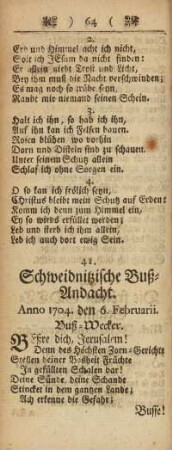 ) 64 (
2.
Erd und Himmel acht ich nicht,
Solt ich JEsum da nicht finden:
Er allein giebt Trost und Licht,
Bey ihm muß die Nacht verschwinden;
Es mag noch so trübe seyn,
Raubt mir niemand seinen Schein.
3.
Halt ich ihn, so hab ich ihn,
Auf ihn kan ich Felsen bauen.
Rosen blühen wo vorhin
Dorn und Disteln sind zu schauen.
Unter seinem Schutz allein
Schlaf ich ohne Sorgen ein.
4.
O so kan ich frölich seyn,
Christus bleibt mein Schutz auf Erden:
Komm ich denn zum Himmel ein,
Ey so wirds erfüllet werden;
Leb und sterb ich ihm allein,
Leb ich auch dort ewig Sein.
41.
Schweidnitzische Buß-
Andacht.
Anno 1704. den 6. Februarii.
Buß-Wecker.
Beßre dich, Jerusalem!
Denn des Höchsten Zorn-Gerichte
Stellen deiner Boßheit Früchte
In gefüllten Schalen dar!
Deine Sünde, deine Schande
Stincket in dem gantzen Lande;
Ach erkenne die Gefahr;
Busse!